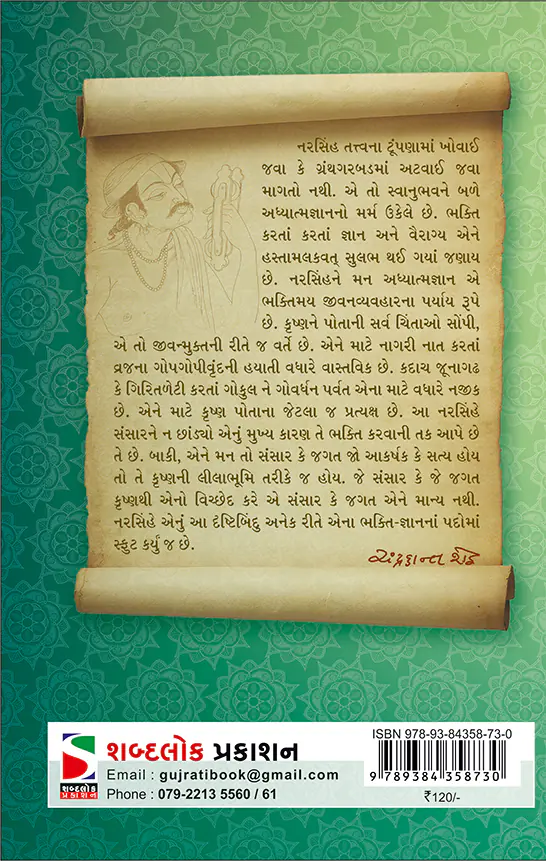 નરસિંહ તત્ત્વના ટૂંપણામાં ખોવાઈ
જવા કે ગ્રંથગરબડમાં અટવાઈ જવા
માગતો નથી. એ તો સ્વાનુભવને બળે
અધ્યાત્મજ્ઞાનનો મર્મ ઉકેલે છે. ભક્તિ
કરતાં કરતાં જ્ઞાન અને વૈરાગ્ય એને
હસ્તામલકવત્ સુલભ થઈ ગયાં જણાય
છે. નરસિંહને મન અધ્યાત્મજ્ઞાન એ
ભક્તિમય જીવનવ્યવહારના પર્યાય રૂપે
છે. કૃષ્ણને પોતાની સર્વ ચિંતાઓ સોંપી,
એ તો જીવન્મુક્તની રીતે જ વર્તે છે. એને માટે નાગરી નાત કરતાં
વ્રજના ગોપગોપીવૃંદની હયાતી વધારે વાસ્તવિક છે. કદાચ જૂનાગઢ
કે ગિરિતળેટી કરતાં ગોકુલ ને ગોવર્ધન પર્વત એના માટે વધારે નજીક
છે. એને માટે કૃષ્ણ પોતાના જેટલા જ પ્રત્યક્ષ છે. આ નરસિંહે
સંસારને ન છાંડ્યો એનું મુખ્ય કારણ તે ભક્તિ કરવાની તક આપે છે
તે છે. બાકી, એને મન તો સંસાર કે જગત જો આકર્ષક કે સત્ય હોય
તો તે કૃષ્ણની લીલાભૂમિ તરીકે જ હોય. જે સંસાર કે જે જગત
કૃષ્ણથી એનો વિચ્છેદ કરે એ સંસાર કે જગત એને માન્ય નથી.
નરસિંહે એનું આ દૃષ્ટિબિંદુ અનેક રીતે એના ભક્તિ-જ્ઞાનનાં પદોમાં
સ્ફુટ કર્યું જ છે.
ચંદ્રકાન્ત શેઠ
શબ્દલોક
પ્રકાશન
શબ્દલોક પ્રકાશન
Email : gujratibook@gmail.com
Phone : 079-2213 5560 / 61
ISBN 978-93-84358-73-0
9 789384 358730
₹120/-